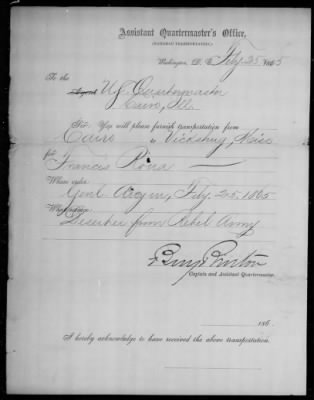 Assistant Quartermaster's Office,
(RAILROAD TRANSPORTATION,)
Washington, D. C. Feby. 25 1865
To the
Agent U.S. Quartermaster
Cairo, Ills.
Sir: You will please furnish transportation from
Cairo to Vicksburg, Miss
for
Francis
Whose order
Genl. Feby. 25. 1865
Deserter from Rebel Army
Captain and Assistant Quartermaster.
186 .
I hereby acknowledge to have received the above transportation.